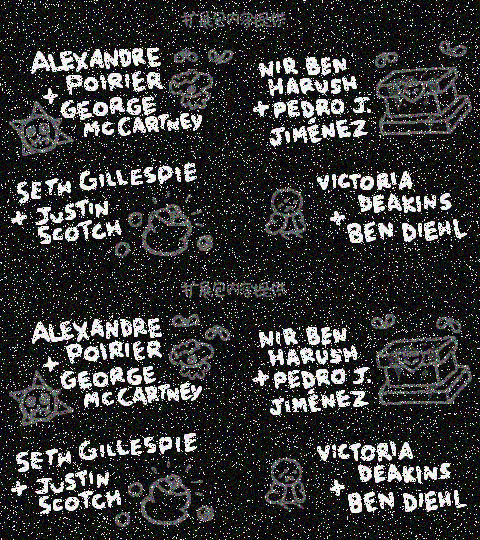 扩展包内容提供
ALEXANDRE
POIRIER
+ GEORGE
MCCARTNEY
NIR BEN
HARUSH
+ PEDRO J.
JIMÉNEZ
SETH GILLESPIE
+ JUSTIN
SCOTCH
VICTORIA
DEAKINS
+ BEN DIEHL
扩展包内容提供
ALEXANDRE
POIRIER
+ GEORGE
MCCARTNEY
NIR BEN
HARUSH
+ PEDRO J.
JIMÉNEZ
SETH GILLESPIE
+ JUSTIN
SCOTCH
VICTORIA
DEAKINS
+ BEN DIEHL